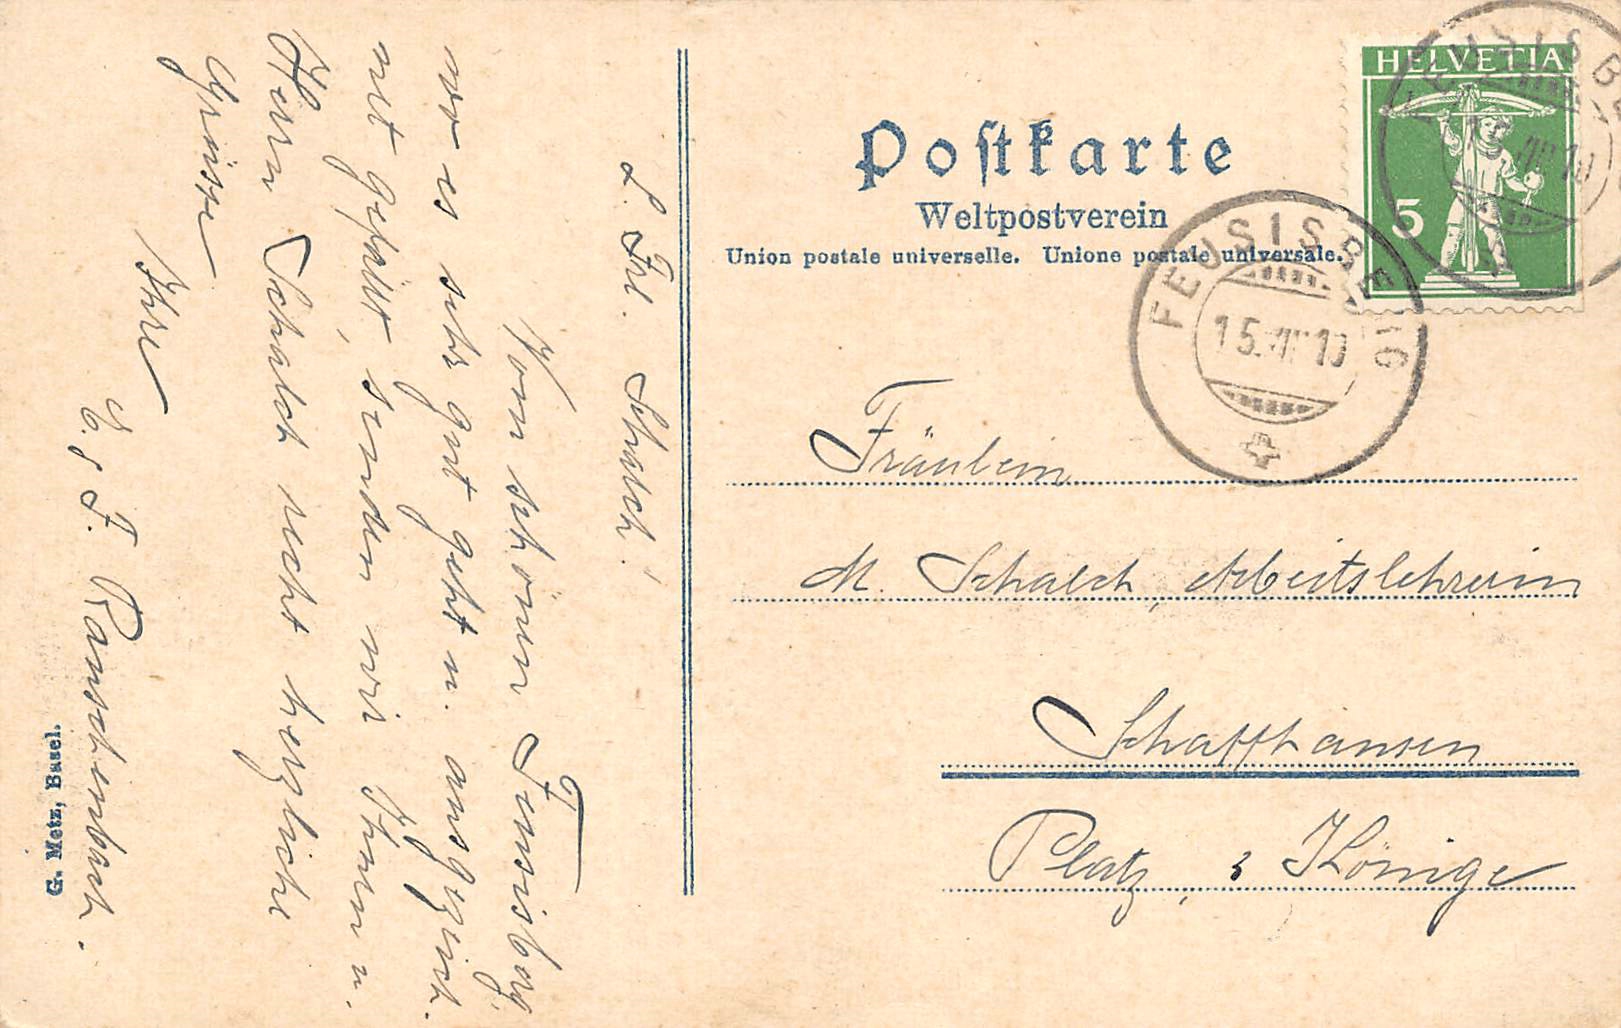 L. Frl. Schalch!
Vom schönen Feusisberg,
wo es sehr gut geht u. ausgezeich.
net gefällt, senden wir Ihnen u.
Herrn Schalch recht herzliche
Grüsse
Ihre
E. & F. Rauschenbach.
G. Metz, Basel.
Postkarte
Weltpostverein
Union postale universelle. Unione postale universale.
HELVETIA
5
FEUSISBERG
15. VII 10
FEUSISB
VII 10
Fräulein
M. Schalch, Arbeitslehrerin
Schaffhausen
Platz, 3 Könige